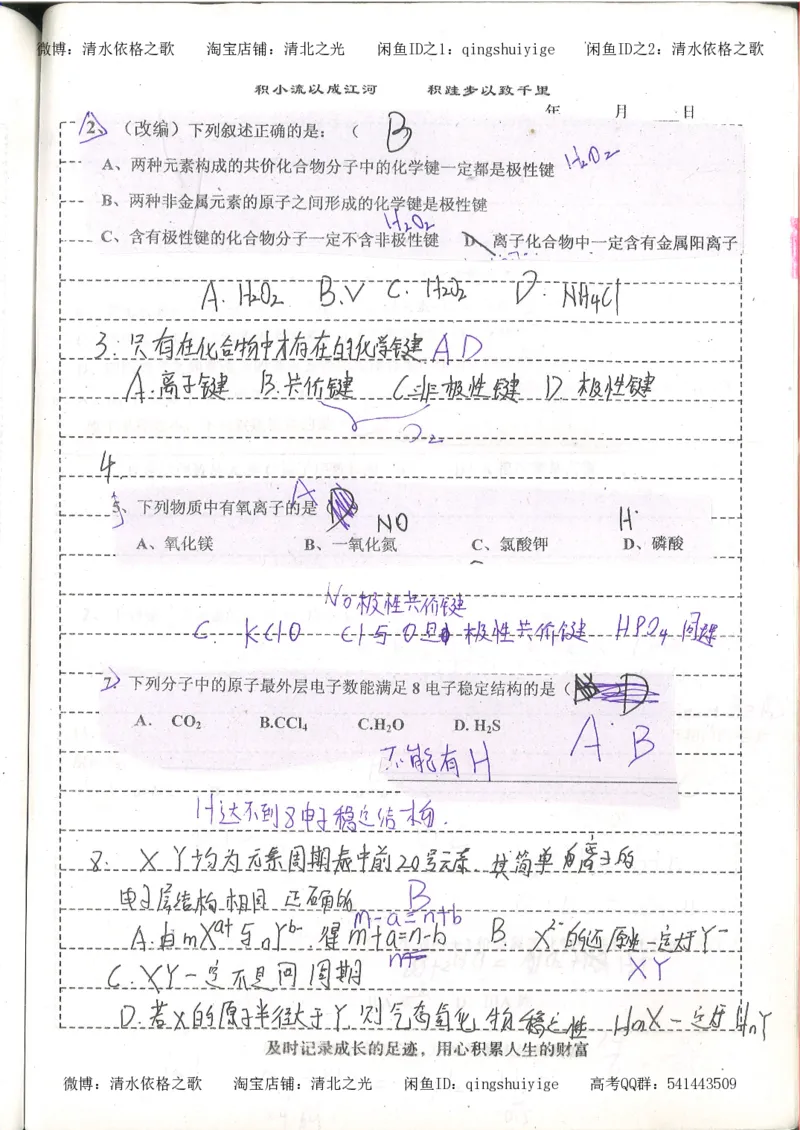 微博：清水依格之歌 淘宝店铺：清北之光 闲鱼ID之1：qingshuiyige 闲鱼ID之2：清水依格之歌
积小流以成江河 积跬步以致千里
年 月 日
2、（改编）下列叙述正确的是：（ B
A、两种元素构成的共价化合物分子中的化学键一定都是极性键 H₂O₂
B、两种非金属元素的原子之间形成的化学键是极性键
H₂O₂
C、含有极性键的化合物分子一定不含非极性键 D、离子化合物中一定含有金属阳离子
A. H₂O₂ B.√ C. H₂O₂ D. NH₄Cl
3. 只有在化合物中才存在的化学键 A D
A.离子键 B.共价键 C.非极性键 D. 极性键
O₂
4.
5、下列物质中有氧离子的是（ A
NO H
A、氧化镁 B、一氧化氮 C、氯酸钾 D、磷酸
NO极性共价键
C. KClO Cl与O是 极性共价键 HPO₄ 同理
7. 下列分子中的原子最外层电子数能满足 8 电子稳定结构的是（ D
A. CO₂ B.CCl₄ C.H₂O D. H₂S
A B
不能有H
H达不到8电子稳定结构.
8. X Y均为元素周期表中前20号元素，其简单离子的
电子层结构相同 正确的 B
m-a=n+b
A.由mXᵃ⁺与nYᵇ⁻，得m+a=n-b B. X²⁻的还原性一定大于Y⁻
n=
X Y
C. X Y一定不是同周期
D.若X的原子半径大于Y，则气态氢化物稳定性 HmX一定大于HnY
及时记录成长的足迹，用心积累人生的财富
微博：清水依格之歌 淘宝店铺：清北之光 闲鱼ID：qingshuiyige 高考QQ群：541443509